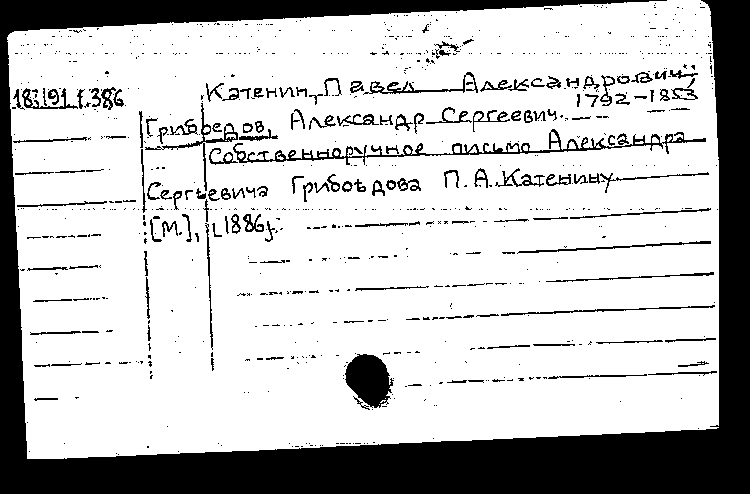 Катенин, Павел Александрович,
18:191.1.386
1792-1853
Грибоедов, Александр Сергеевич.
Собственноручное письмо Александра
Сергѣевича Грибоѣдова П.А. Катенину.
[М.], [1886].